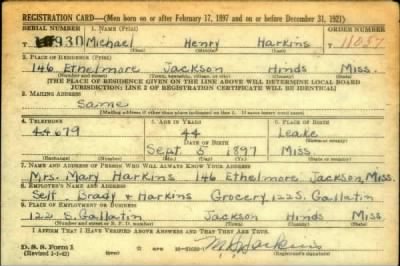 REGISTRATION CARD—(Men born on or after February 17, 1897 and on or before December 31, 1921)
SERIAL NUMBER 1. NAME (Print) ORDER NUMBER
930 Michael Henry Harkins 11057
(First) (Middle) (Last)
2. PLACE OF RESIDENCE (Print)
146 Ethelmore Jackson Hinds Miss.
(Number and street) (Town, township, village, or city) (County) (State)
[THE PLACE OF RESIDENCE GIVEN ON THE LINE ABOVE WILL DETERMINE LOCAL BOARD
JURISDICTION; LINE 2 OF REGISTRATION CERTIFICATE WILL BE IDENTICAL]
3. MAILING ADDRESS
Same
[Mailing address if other than place indicated on line 2. If same insert word same]
4. TELEPHONE 5. AGE IN YEARS 6. PLACE OF BIRTH
44679 44 Leake
DATE OF BIRTH (Town or county)
Sept. 5 1897 Miss
(Exchange) (Number) (Mo.) (Day) (Yr.) (State or country)
7. NAME AND ADDRESS OF PERSON WHO WILL ALWAYS KNOW YOUR ADDRESS
Mrs. Mary Harkins 146 Ethelmore Jackson, Miss.
8. EMPLOYER'S NAME AND ADDRESS
Self Brady & Harkins Grocery 122 S. Gallatin
9. PLACE OF EMPLOYMENT OR BUSINESS
122 S. Gallatin Jackson Hinds Miss
(Number and street or R. F. D. number) (Town) (County) (State)
I AFFIRM THAT I HAVE VERIFIED ABOVE ANSWERS AND THAT THEY ARE TRUE.
D. S. S. Form 1
(Revised 1-1-42) (over) Harkins
(Registrant's signature)